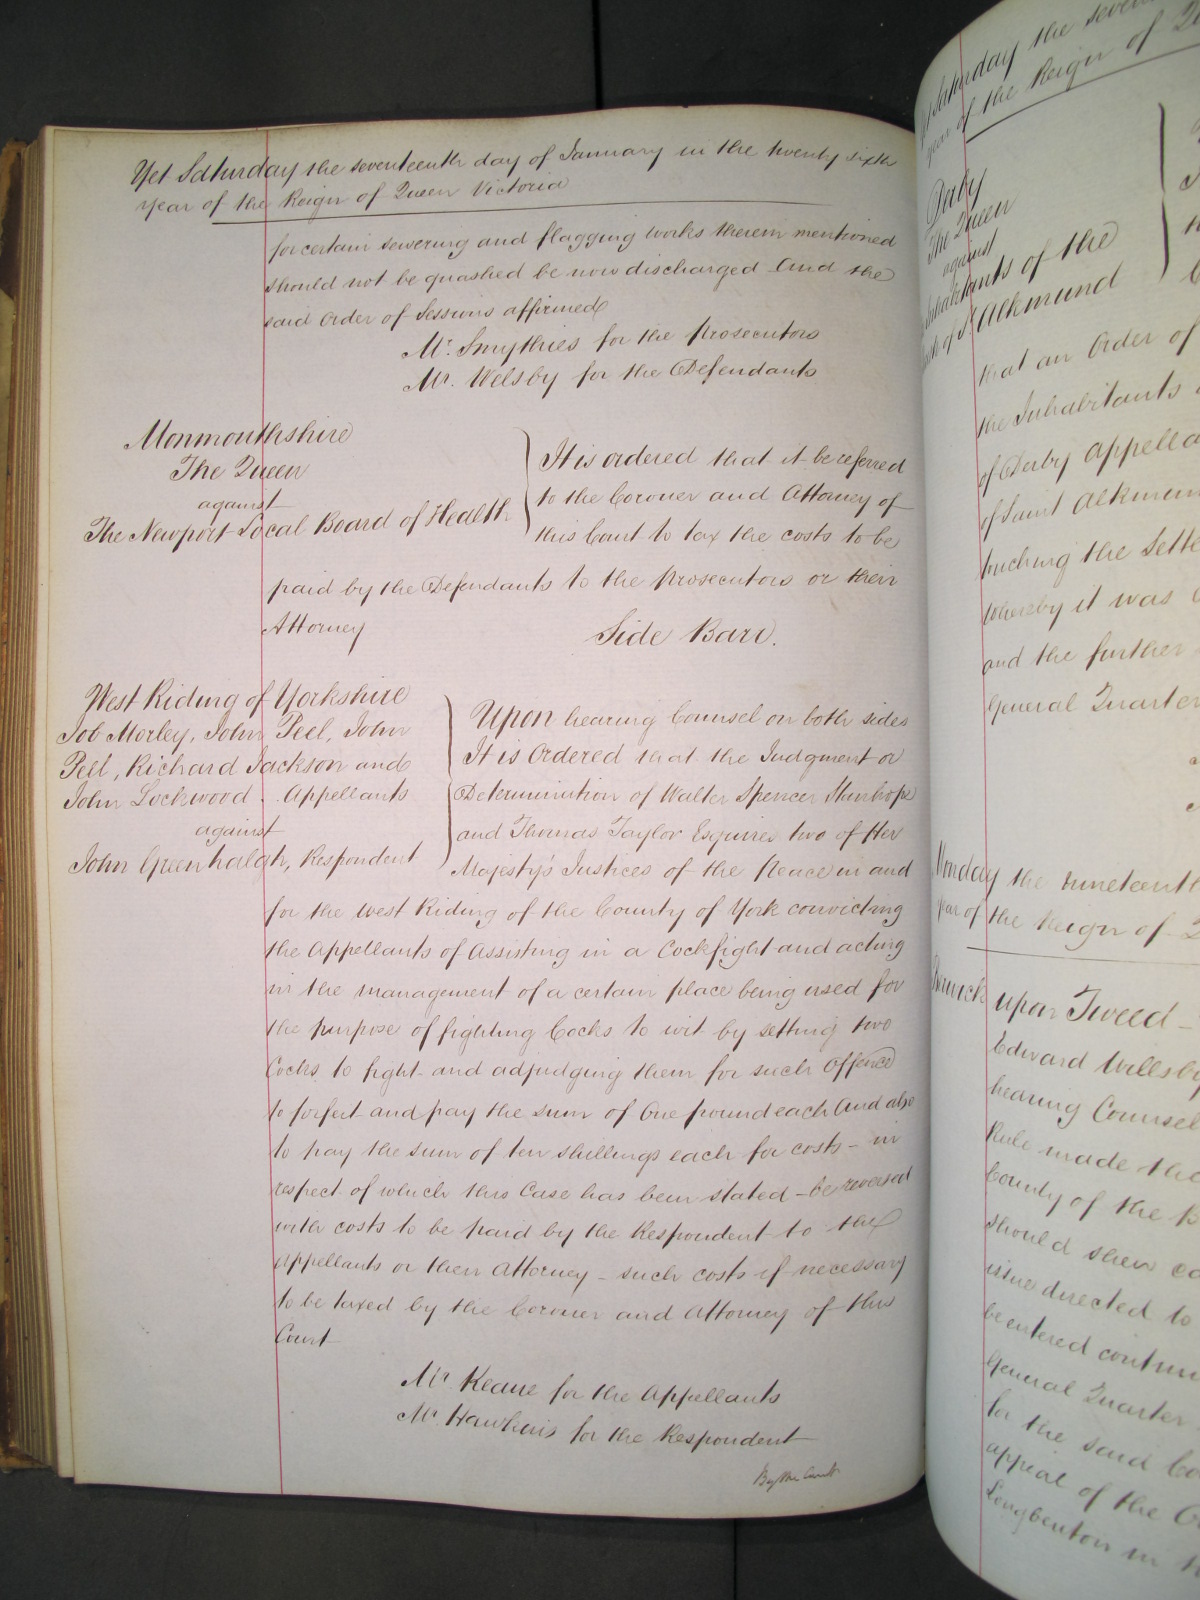 Yet Saturday the seventeenth day of January in the twenty sixth
year of the Reign of Queen Victoria
for certain sewering and flagging works therein mentioned
should not be quashed be now discharged And the
said Order of Sessions affirmed
Mr. Smythies for the Prosecutors
Mr. Welsby for the Defendants
Monmouthshire
The Queen
against
The Newport Local Board of Health
It is ordered that it be referred
to the Coroner and Attorney of
this Court to tax the costs to be
paid by the Defendants to the Prosecutors or their
Attorney
Side Barr.
West Riding of Yorkshire
Job Morley, John Peel, John
Pell, Richard Jackson and
John Lockwood . Appellants
against
John Greenhalgh, Respondent
Upon hearing Counsel on both sides
It is Ordered that the Judgment or
Determination of Walter Spencer Stanhope
and Thomas Taylor Esquires two of Her
Majesty's Justices of the Peace in and
for the West Riding of the County of York convicting
the Appellants of Assisting in a Cockfight and acting
in the management of a certain place being used for
the purpose of fighting Cocks to wit by setting two
Cocks to fight and adjudging them for such Offence
to forfeit and pay the sum of One pound each And also
to pay the sum of ten shillings each for costs - in
respect of which this Case has been stated - be reversed
with costs to be paid by the Respondent to the
Appellants or their Attorney - such costs if necessary
to be taxed by the Coroner and Attorney of this
Court
Mr Keane for the Appellants
Mr. Hawkins for the Respondent
By the Court
Saturday the
year of the Reign of
Derby
The Queen
against
Inhabitants of the
of St Alkmund
that an Order of
the Inhabitants
of Derby Appella
of Saint Alkmun
touching the Settle
whereby it was
and the further
General Quarter
Monday the nineteenth
year of the Reign of
Berwick upon Tweed -
Edward Willsby
hearing Counsel
Rule made tha
County of the B
should shew ca
issue directed to
be entered continu
General Quarter
for the said Co
appeal of the O
Longbenton in